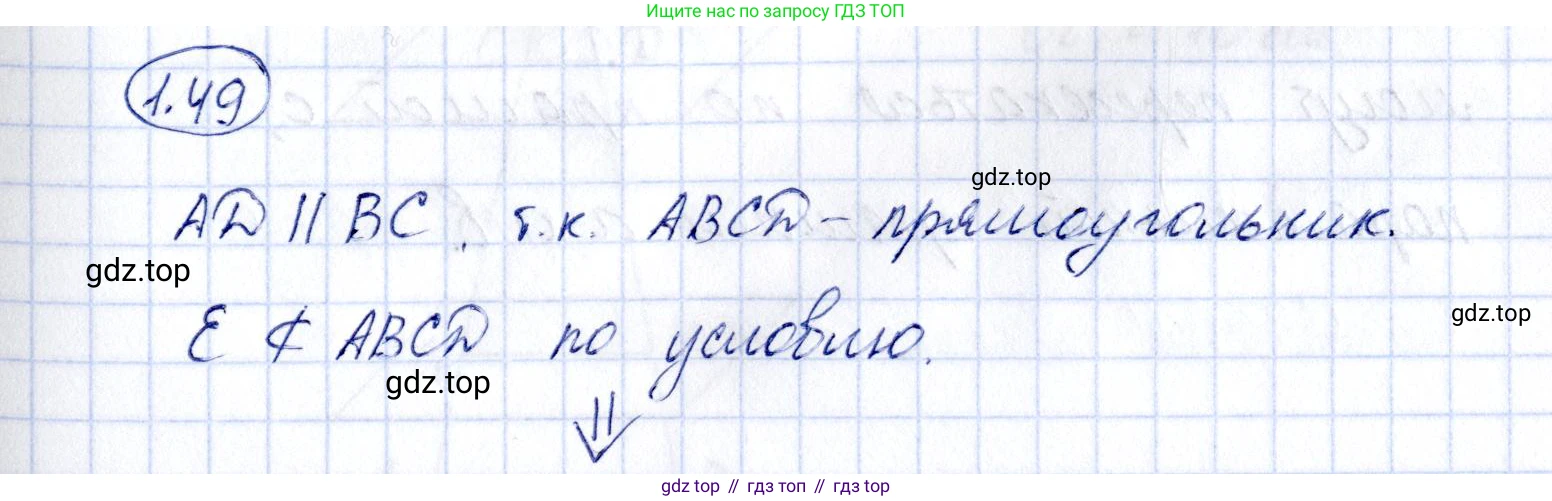 Ищите нас по запросу ГДЗ ТОП
1.49
AD || BC, т.к. ABCD - прямоугольник.
gdz.top
gdz.top
E ⊄ ABCD по условлю.
gdz.top
gdz.top
⇓
gdz top // гдз топ // гдз top